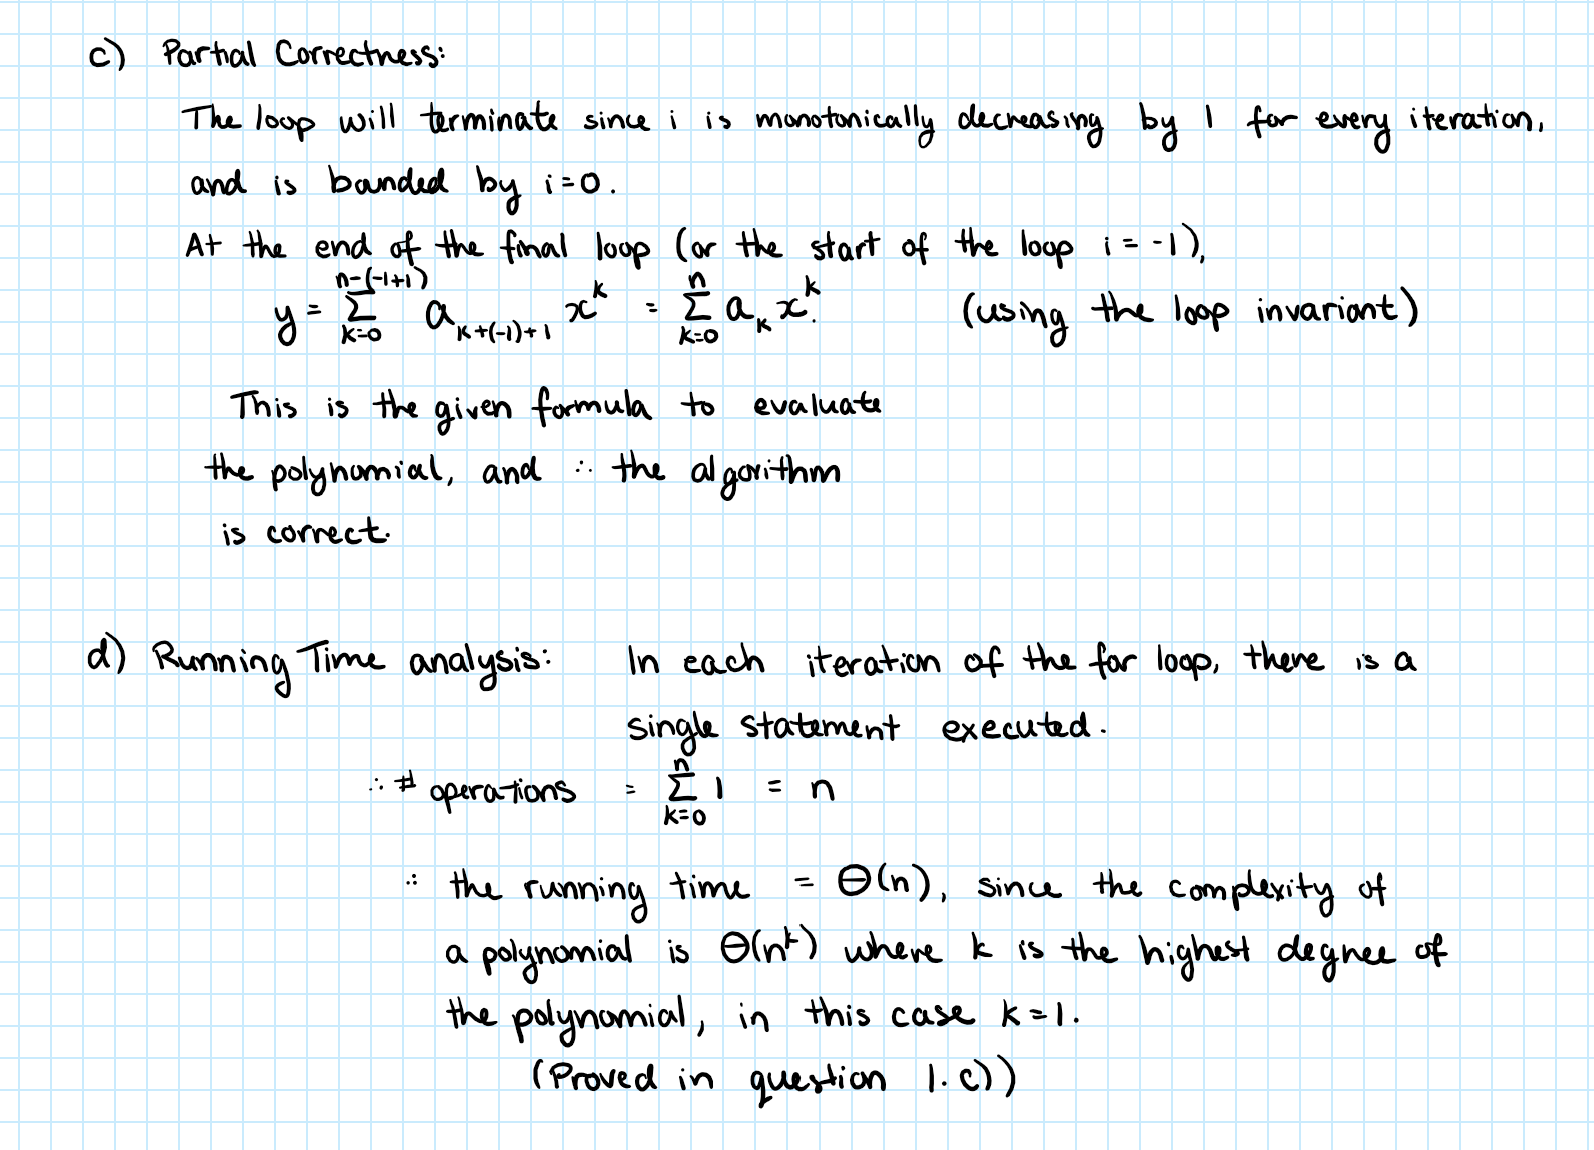 c) Partial Correctness:
The loop will terminate since i is monotonically decreasing by 1 for every iteration,
and is bounded by i=0.
At the end of the final loop (or the start of the loop i = -1),
y = Σ_{k=0}^{n-(-1+1)} a_{k+(-1)+1} x^k = Σ_{k=0}^{n} a_k x^k. (using the loop invariant)
This is the given formula to evaluate
the polynomial, and ∴ the algorithm
is correct.
d) Running Time analysis: In each iteration of the for loop, there is a
single statement executed.
∴ # operations = Σ_{k=0}^{n} 1 = n
∴ the running time = Θ(n), since the complexity of
a polynomial is Θ(n^k) where k is the highest degree of
the polynomial, in this case k=1.
(Proved in question 1. c))